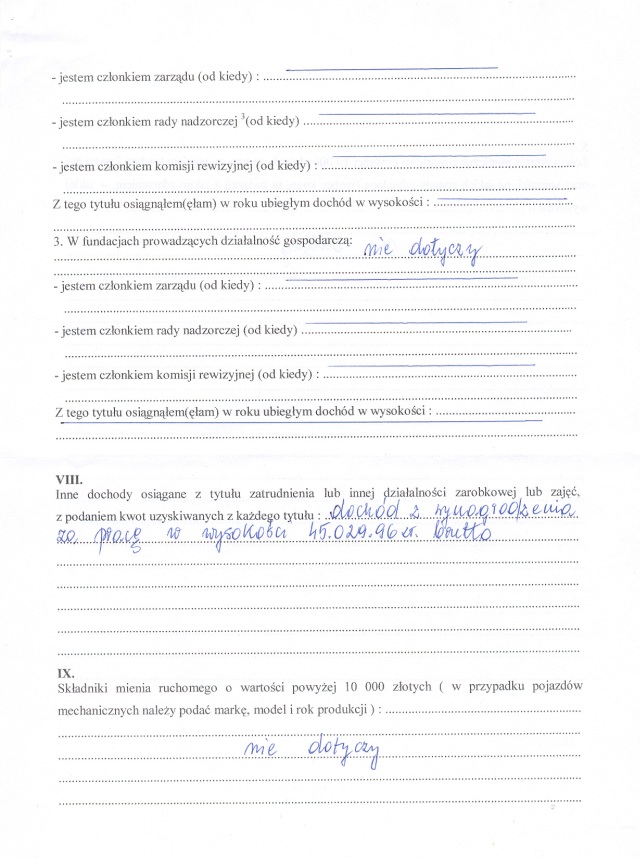 - jestem członkiem zarządu (od kiedy) : ........................................
................................................................................
- jestem członkiem rady nadzorczej ³(od kiedy) ........................................
................................................................................
- jestem członkiem komisji rewizyjnej (od kiedy) : ........................................
................................................................................
Z tego tytułu osiągnąłem(ęłam) w roku ubiegłym dochód w wysokości : ..............................
................................................................................
3. W fundacjach prowadzących działalność gospodarczą: nie dotyczy
................................................................................
................................................................................
- jestem członkiem zarządu (od kiedy) : ........................................
................................................................................
- jestem członkiem rady nadzorczej (od kiedy) ........................................
................................................................................
- jestem członkiem komisji rewizyjnej (od kiedy) : ........................................
................................................................................
Z tego tytułu osiągnąłem(ęłam) w roku ubiegłym dochód w wysokości : ..............................
................................................................................
VIII.
Inne dochody osiągane z tytułu zatrudnienia lub innej działalności zarobkowej lub zajęć,
z podaniem kwot uzyskiwanych z każdego tytułu : dochód z wynagrodzenia
za pracę w wysokości 45.029.96 zł. brutto
................................................................................
................................................................................
................................................................................
................................................................................
IX.
Składniki mienia ruchomego o wartości powyżej 10 000 złotych ( w przypadku pojazdów
mechanicznych należy podać markę, model i rok produkcji ) : ........................................
................................................................................
nie dotyczy
................................................................................
................................................................................